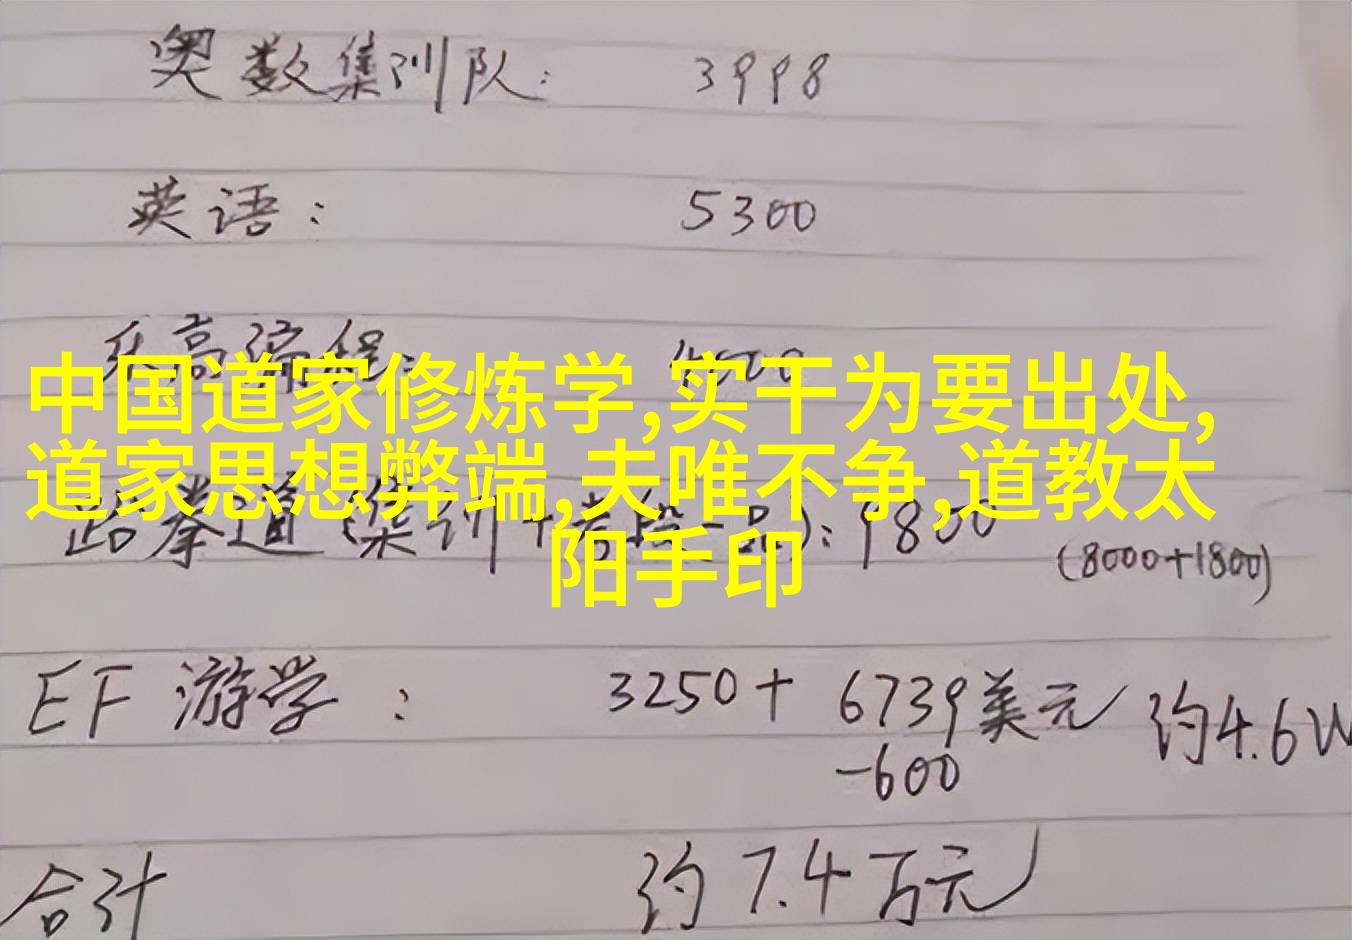 奥数集训队: 3998
英语: 5300
乐高编程:
中国道家修炼学,实干为要出处,
道家思想弊端,夫唯不争,道教太
阳手印
跆拳道(集训+考段一品): 9800
(8000+1800)
EF 游学: 3250+ 6739美元 约4.6W
-600
合计 约7.4万元